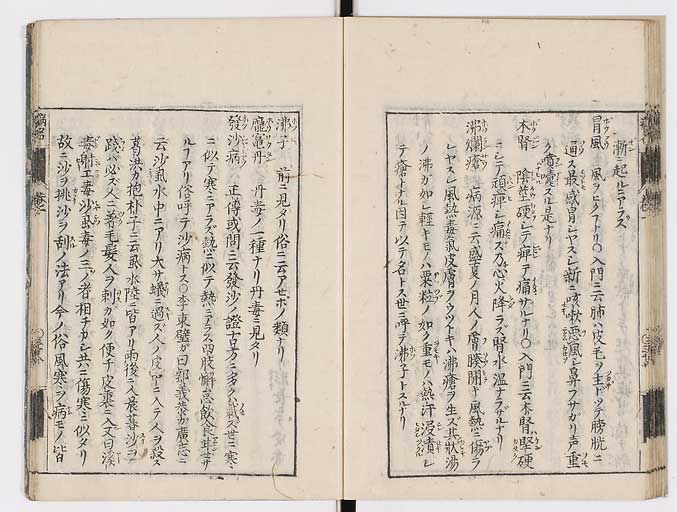 漸ニ起ルニアラズ
冒風 風ヲヒクナリ〇入門ニ云肺ハ皮毛ヲ主ドツテ膀胱ニ
通ス最感冒シヤスシ新ニ咳嗽悪風シ鼻フサガリ声重
ク噴嚏スル是ナリ
木腎 陰莖硬シテ痺テ痛サルナリ〇入門ニ云木腎ハ堅硬
ニシテ頑痺シ痛ズ乃心火降ラズ腎水温ナラザルナリ
沸爛瘡 病源ニ云盛夏ノ月人ノ膚腠開キ風熱ニ傷ラ
レヤスシ風熱毒氣皮膚ヲウツトキハ沸瘡ヲ生ズ其狀湯
ノ沸カ如シ輕キモノハ粟粒ノ如ク重モノハ熱汗浸漬シ
テ瘡トナル因テ以テ名トス世ニ呼テ沸子トスナリ
沸子 前ニ見タリ俗ニ云アせボノ類ナリ
龐亀丹 丹毒ノ一種ナリ丹毒ニ見タリ
發沙病 正傳或問ニ云發沙ノ證古方ニ多ク載ズ世ニ寒ニ
ニ似テ寒ニアラズ熱ニ似テ熱ニアラズ四肢懈怠飲食甘セザ
ルナアリ俗呼テ沙病トス〇李東璧カ曰郭義恭カ廣志ニ
云沙虱水中ニアリ大サ蟣ニ過ズ人ノ皮中ニ入テ人ヲ殺ス
葛洪カ抱朴子ニ云虱水陸ニ皆アリ雨後ニ人晨暮沙ヲ
踐ハ必ズ人ニ著毛髪人ヲ刺カ如ク便チ皮裏ニ入又曰溪
毒射工毒沙虱毒ノ三ノ者相チカシ共ニ傷寒ニ似タリ
故ニ沙ヲ挑沙ヲ刮ノ法アリ今ノ俗風寒ヲ病モノ皆